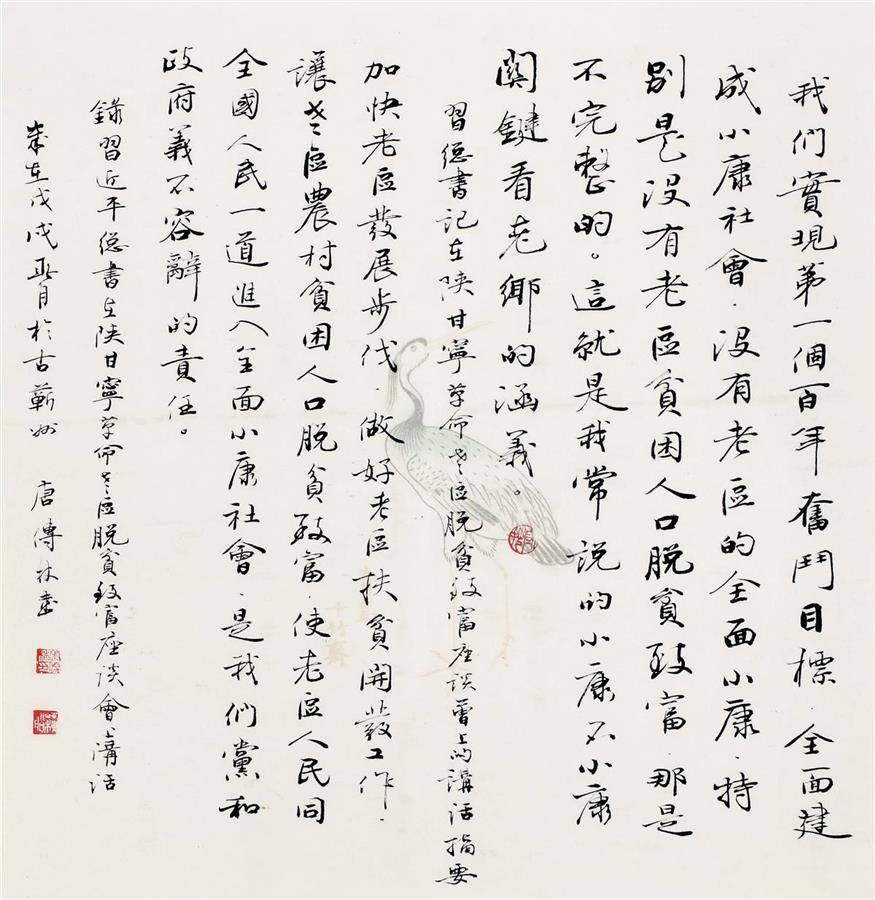 我們實現第一個百年奮鬥目標.全面建
成小康社會.沒有老區的全面小康.特
別是沒有老區貧困人口脫貧致富.那是
不完整的。這就是我常說的小康不小康
關鍵看老鄉的涵義。
習總書記在陝甘寧革命老區脫貧致富座談會上的講話摘要
加快老區發展步伐.做好老區扶貧開發工作.
讓老區農村貧困人口脫貧致富.使老區人民同
全國人民一道進入全面小康社會.是我們黨和
政府義不容辭的責任。
錄習近平總書在陝甘寧革命老區脫貧致富座談會上講話
歲在戊戌正月於古蘄州 唐傳林書
十竹齋